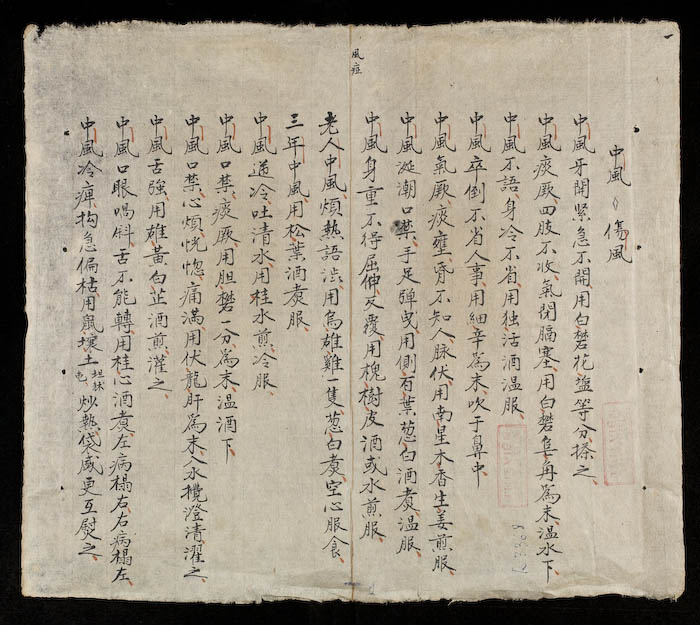 風症
中風 傷風
中風牙開緊急不開用白礬花塩等分搽之
中風痰厥四肢不收氣閉膈塞用白礬皂角為末温水下
中風不語身冷不省用独活酒温服
中風卒倒不省人事用細辛為末吹于鼻中
中風氣厥痰壅昏不知人脉伏用南星木香生姜煎服
中風涎潮口禁手足弹曳用側石葉葱白酒煑温服
中風身重不得屈伸反覆用槐樹皮酒或水煎服
老人中風煩熱語澁用烏雄雞一隻葱白煑空心服食
三年中風用松葉酒煑服
中風逆冷吐清水用桂水煎冷服
中風口禁痰厥用胆礬一分為末温酒下
中風口禁心煩恍惚痛滿用伏龍肝為末入水攪澄清濯之
中風舌強用雄黃白芷酒煎灌之
中風口眼喎斜舌不能轉用桂心酒煑左病榻右右病榻左
中風冷痺拘急偏枯用鼠壤土坦抹屯炒熱袋盛更互熨之